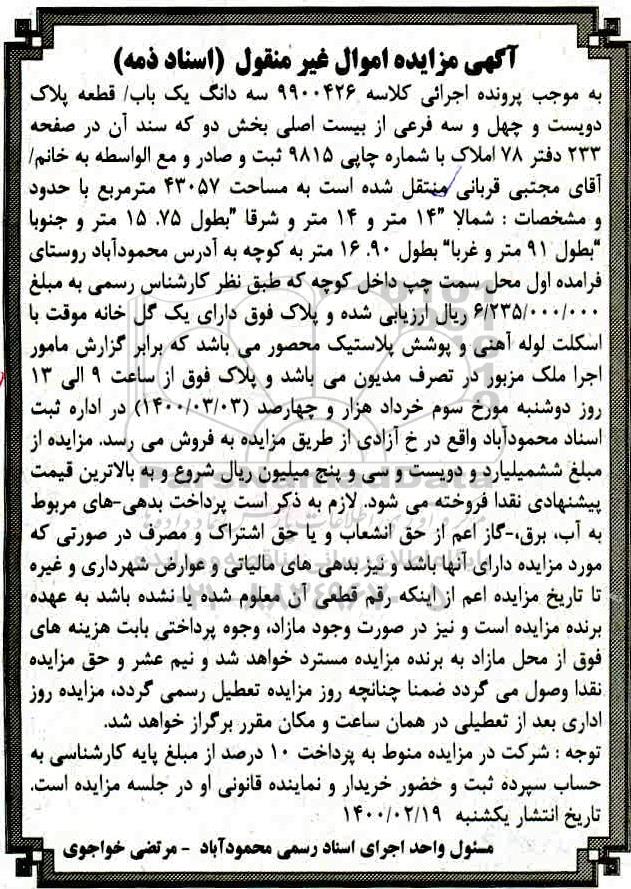 آگهی مزایده اموال غیر منقول (اسناد ذمه)
به موجب پرونده اجرائی کلاسه ۹۹۰۰۴۲۶ سه دانگ یک باب/ قطعه پلاک
دویست و چهل و سه فرعی از بیست اصلی بخش دو که سند آن در صفحه
۲۳۳ دفتر ۷۸ املاک با شماره چاپی ۹۸۱۵ ثبت و صادر و مع الواسطه به خانم/
آقای مجتبی قربانی منتقل شده است به مساحت ۴۳۰۵۷ مترمربع با حدود
و مشخصات : شمالا "۱۴ متر و ۱۴ متر و شرقا "بطول ۷۵. ۱۵ متر و جنوبا
"بطول ۹۱ متر و غربا" بطول ۹۰. ۱۶ متر به کوچه به آدرس محمودآباد روستای
فرامده اول محل سمت چپ داخل کوچه که طبق نظر کارشناس رسمی به مبلغ
۶/۲۳۵/۰۰۰/۰۰۰ ریال ارزیابی شده و پلاک فوق دارای یک گل خانه موقت با
اسکلت لوله آهنی و پوشش پلاستیک محصور می باشد که برابر گزارش مامور
اجرا ملک مزبور در تصرف مدیون می باشد و پلاک فوق از ساعت ۹ الی ۱۳
روز دوشنبه مورخ سوم خرداد هزار و چهارصد (۱۴۰۰/۰۳/۰۳) در اداره ثبت
اسناد محمودآباد واقع در خ آزادی از طریق مزایده به فروش می رسد. مزایده از
مبلغ ششمیلیارد و دویست و سی و پنج میلیون ریال شروع و به بالاترین قیمت
پیشنهادی نقدا فروخته می شود. لازم به ذکر است پرداخت بدهی-های مربوط
به آب، برق،-گاز اعم از حق انشعاب و یا حق اشتراک و مصرف در صورتی که
مورد مزایده دارای آنها باشد و نیز بدهی های مالیاتی و عوارض شهرداری و غیره
تا تاریخ مزایده اعم از اینکه رقم قطعی آن معلوم شده یا نشده باشد به عهده
برنده مزایده است و نیز در صورت وجود مازاد، وجوه پرداختی بابت هزینه های
فوق از محل مازاد به برنده مزایده مسترد خواهد شد و نیم عشر و حق مزایده
نقدا وصول می گردد ضمنا چنانچه روز مزایده تعطیل رسمی گردد، مزایده روز
اداری بعد از تعطیلی در همان ساعت و مکان مقرر برگزار خواهد شد.
توجه : شرکت در مزایده منوط به پرداخت ۱۰ درصد از مبلغ پایه کارشناسی به
حساب سپرده ثبت و خضور خریدار و نماینده قانونی او در جلسه مزایده است.
تاریخ انتشار یکشنبه ۱۴۰۰/۰۲/۱۹
مسئول واحد اجرای اسناد رسمی محمودآباد - مرتضی خواجوی
ParsNamadData